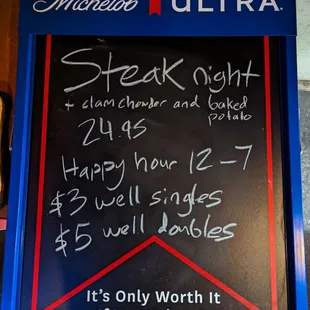 Michelob ULTRA
Steak night
+ clam chowder and baked
potato
24.95
Happy hour 12-7
$3 well singles
$5 well doubles
It's Only Worth It